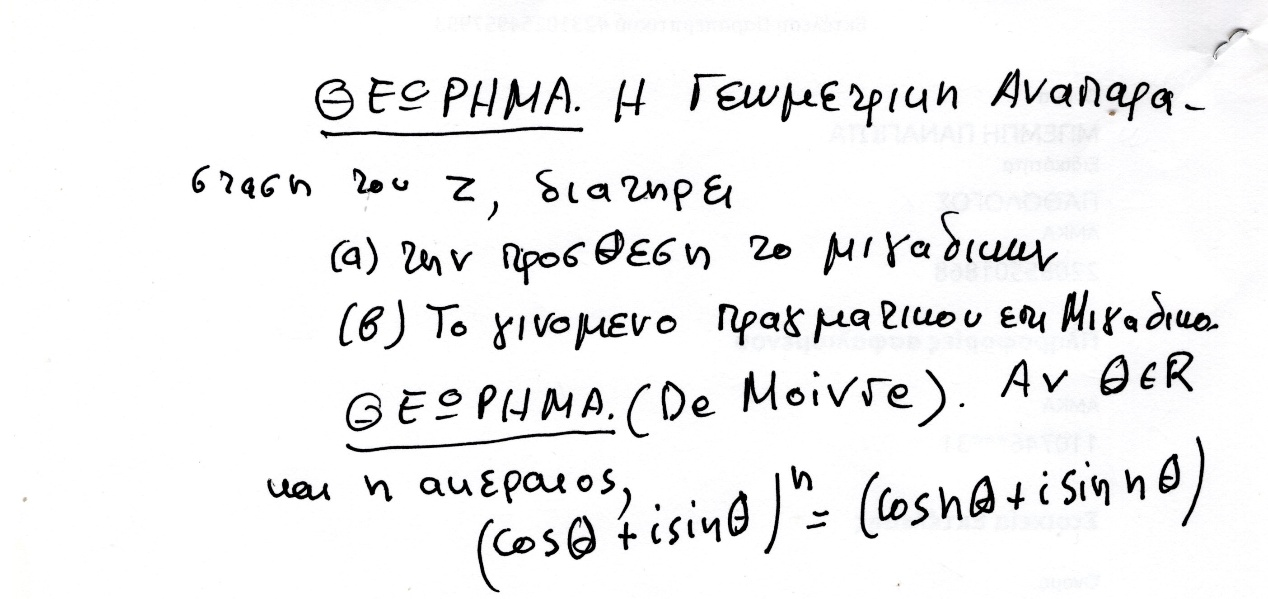 ΘΕΩΡΗΜΑ. Η Γεωμετρικη Αναπαρα-
σταση του z, διατηρει
(α) την προσθεση το μιγαδικων
(β) Το γινομενο πραγματικου επι Μιγαδικο.
ΘΕΩΡΗΜΑ. (De Moivre). Αν θ∈R
και n ακεραιος,
(cosθ + isinθ)^n = (cos nθ + i sin nθ)